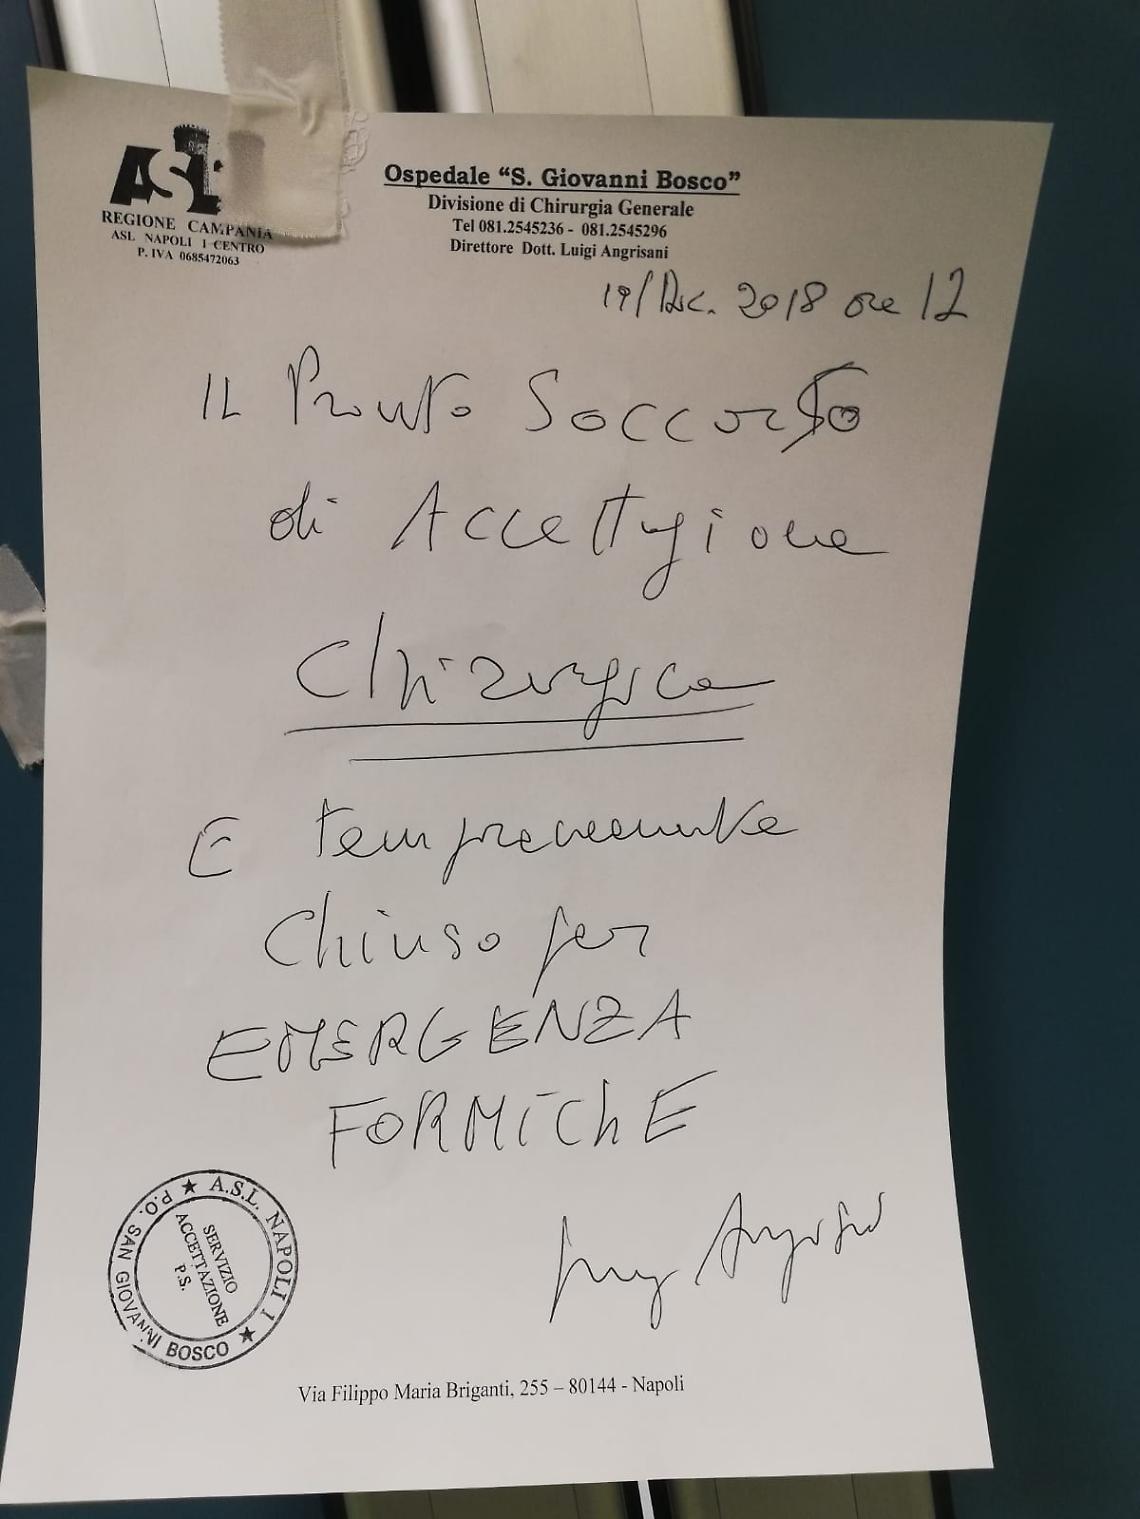 ASL
REGIONE CAMPANIA
ASL NAPOLI 1 CENTRO
P. IVA 0685472063
Ospedale “S. Giovanni Bosco”
Divisione di Chirurgia Generale
Tel 081.2545236 - 081.2545296
Direttore Dott. Luigi Angrisani
19/Dic. 2018 ore 12
IL Pronto Soccorso
di Accettazione
Chirurgica
E temporeamente
Chiuso per
EMERGENZA
FORMiChE
A.S.L. NAPOLI 1 ★ P.O. SAN GIOVANNI BOSCO ★
SERVIZIO
ACCETTAZIONE
P.S.
Via Filippo Maria Briganti, 255 – 80144 - Napoli